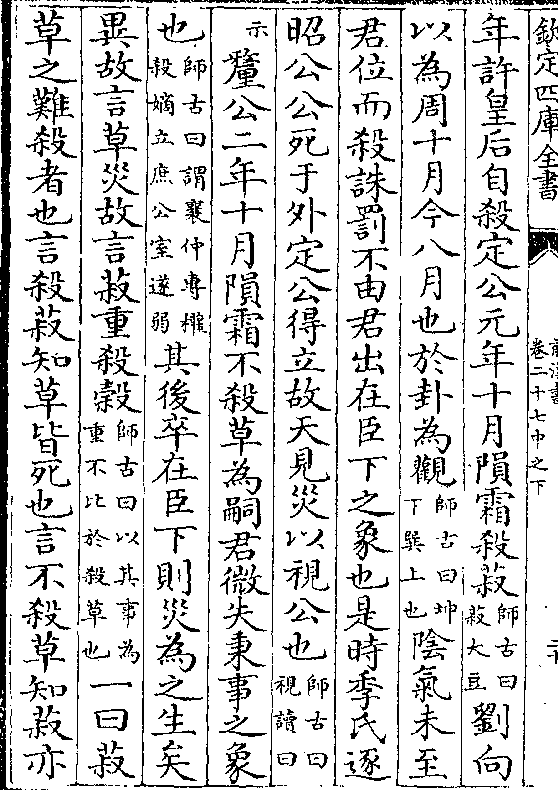 欽定四庫全書
前漢書
卷二十七中之下
年許皇后自殺定公元年十月隕霜殺菽師古曰菽大豆劉向
以為周十月今八月也於卦為觀師古曰坤下巽上也陰氣未至
君位而殺誅罰不由君出在臣下之象也是時季氏逐
昭公公死于外定公得立故天見災以視公也師古曰視讀曰
示釐公二年十月隕霜不殺草為嗣君微失秉事之象
也師古曰謂襄仲專權殺嫡立庶公室遂弱其後卒在臣下則災為之生矣
異故言草災故言菽重殺榖師古曰以其事為重不比於殺草也一曰菽
草之難殺者也言殺菽知草皆死也言不殺草知菽亦